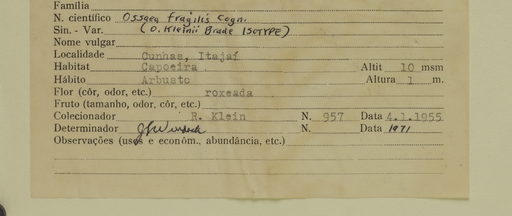 Família
N. científico Ossaea fragilis Cogn.
Sin. - Var. (O. Kleinii Brade ISOTYPE)
Nome vulgar
Localidade Cunhas, Itajaí
Habitat Capoeira Altit 10 msm
Hábito Arbusto Altura 1 m.
Flor (côr, odor, etc.) roxeada
Fruto (tamanho, odor, côr, etc.)
Colecionador R. Klein N. 957 Data 4.1.1955
Determinador J J Wurdack N. Data 1971
Observações (usos e econôm., abundância, etc.)